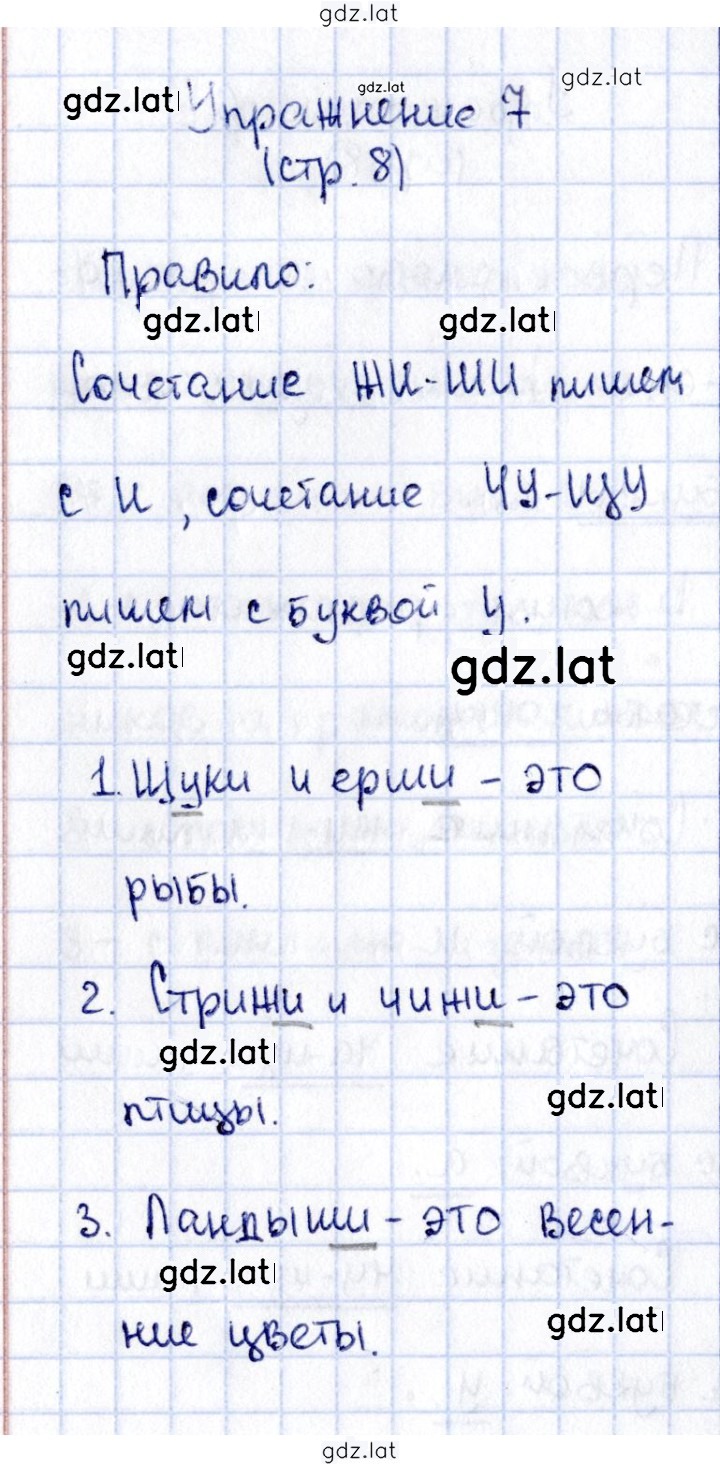 gdz.lat
gdz.lat
gdz.lat
gdz.lat
Упражнение 7
(стр. 8)
Правило:
gdz.lat gdz.lat
Сочетание ЖИ-ШИ пишем
с И, сочетание ЧУ-ЩУ
пишем с буквой У.
gdz.lat gdz.lat
1. Щуки и ерши - это
рыбы.
2. Стрижи и чижи - это
gdz.lat
gdz.lat
птицы.
3. Ландыши - это весен-
gdz.lat
gdz.lat
ние цветы.
gdz.lat